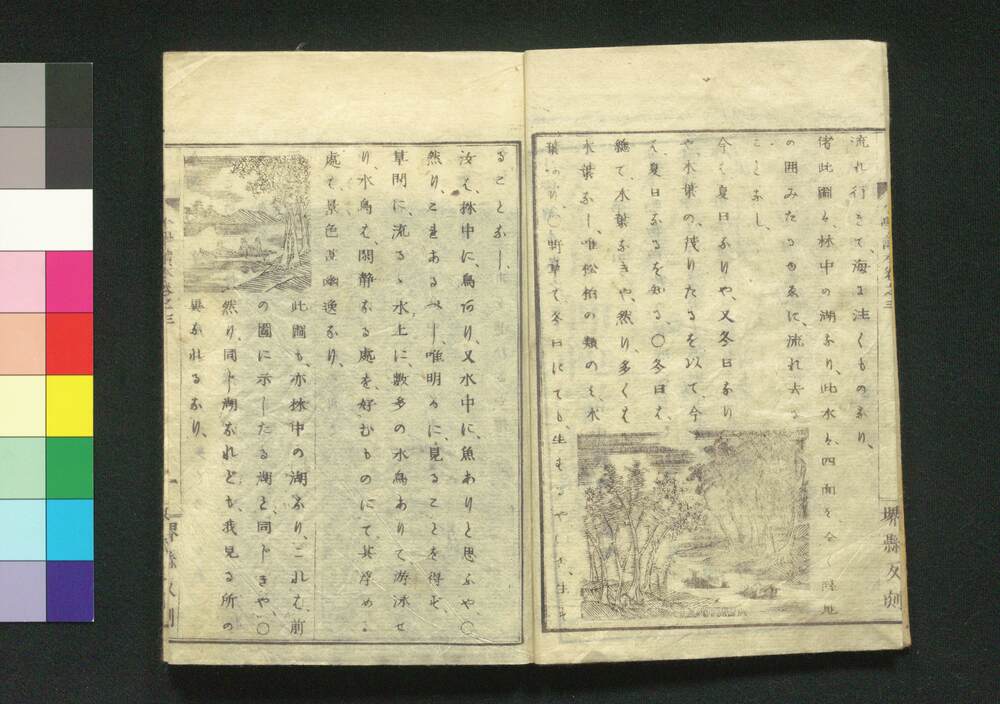 流れ行きて、海に注くものなり、
偖此圖は、林中の湖なり、此水は、四面を全
の囲みたるゆゑに、流れ去る
ことなし、
今は夏日なりや、又冬日なり
や、木葉の、茂りたるを以て、今
は、夏日なるを知る、〇冬日は、
總て、木葉なきや、然り、多くは
木葉なし、唯松柏の類のみ、木
冬日にても、生
堺縣反刻
ることなし、
汝は、林中に、鳥あり、又水中に、魚ありと思ふや、〇
然り、これあるべし、唯明かに、見ることを得ず、
草間に、流るゝ水上に、數多の水鳥ありて、游泳せ
り、水鳥は、閑静なる處を、好むものにて、其浮める
處は、景色甚幽邃なり、
此圖も、亦林中の湖なり、これは、前
の圖に示したる湖と、同じきや、〇
然り、同じ湖なれども、我見る所の
異なれるなり、
堺縣反刻